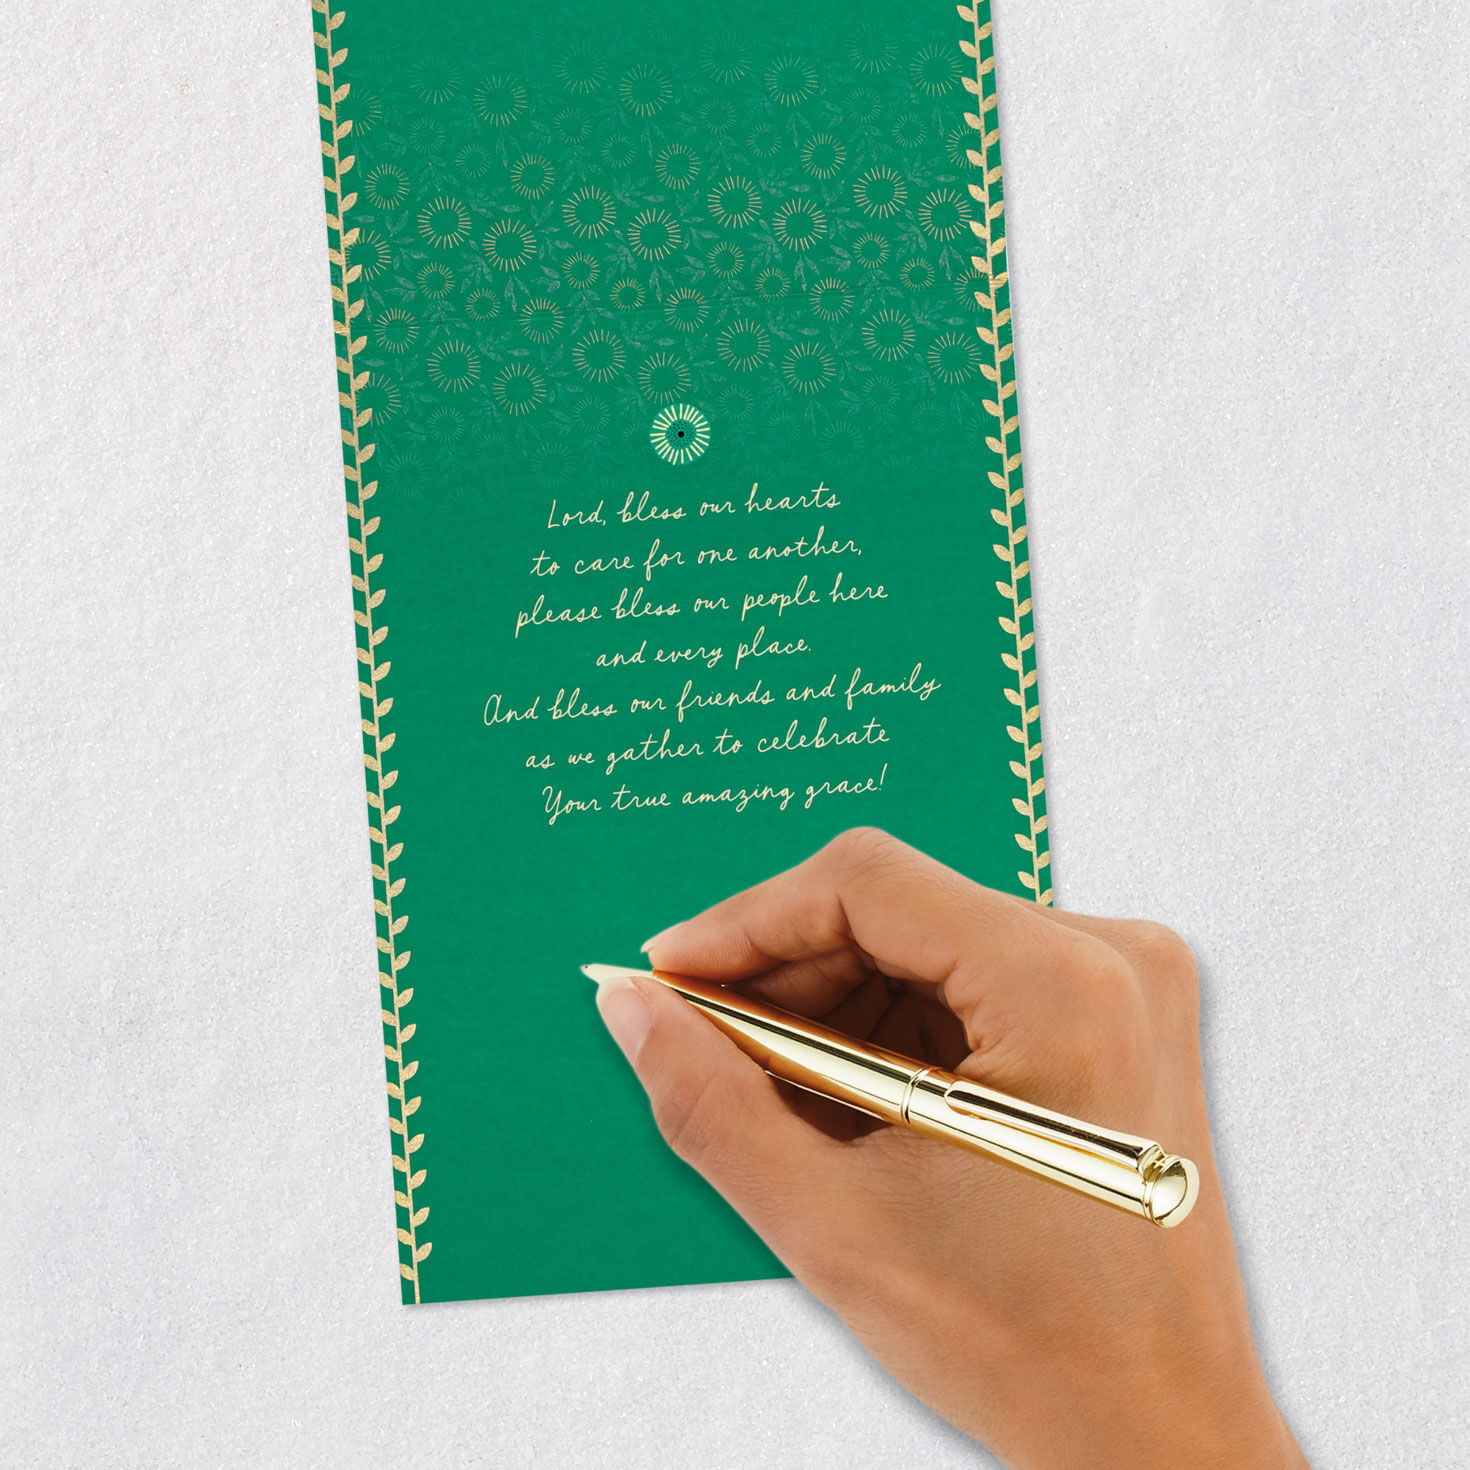 Lord, bless our hearts
to care for one another,
please bless our people here
and every place.
And bless our friends and family
as we gather to celebrate
Your true amazing grace!